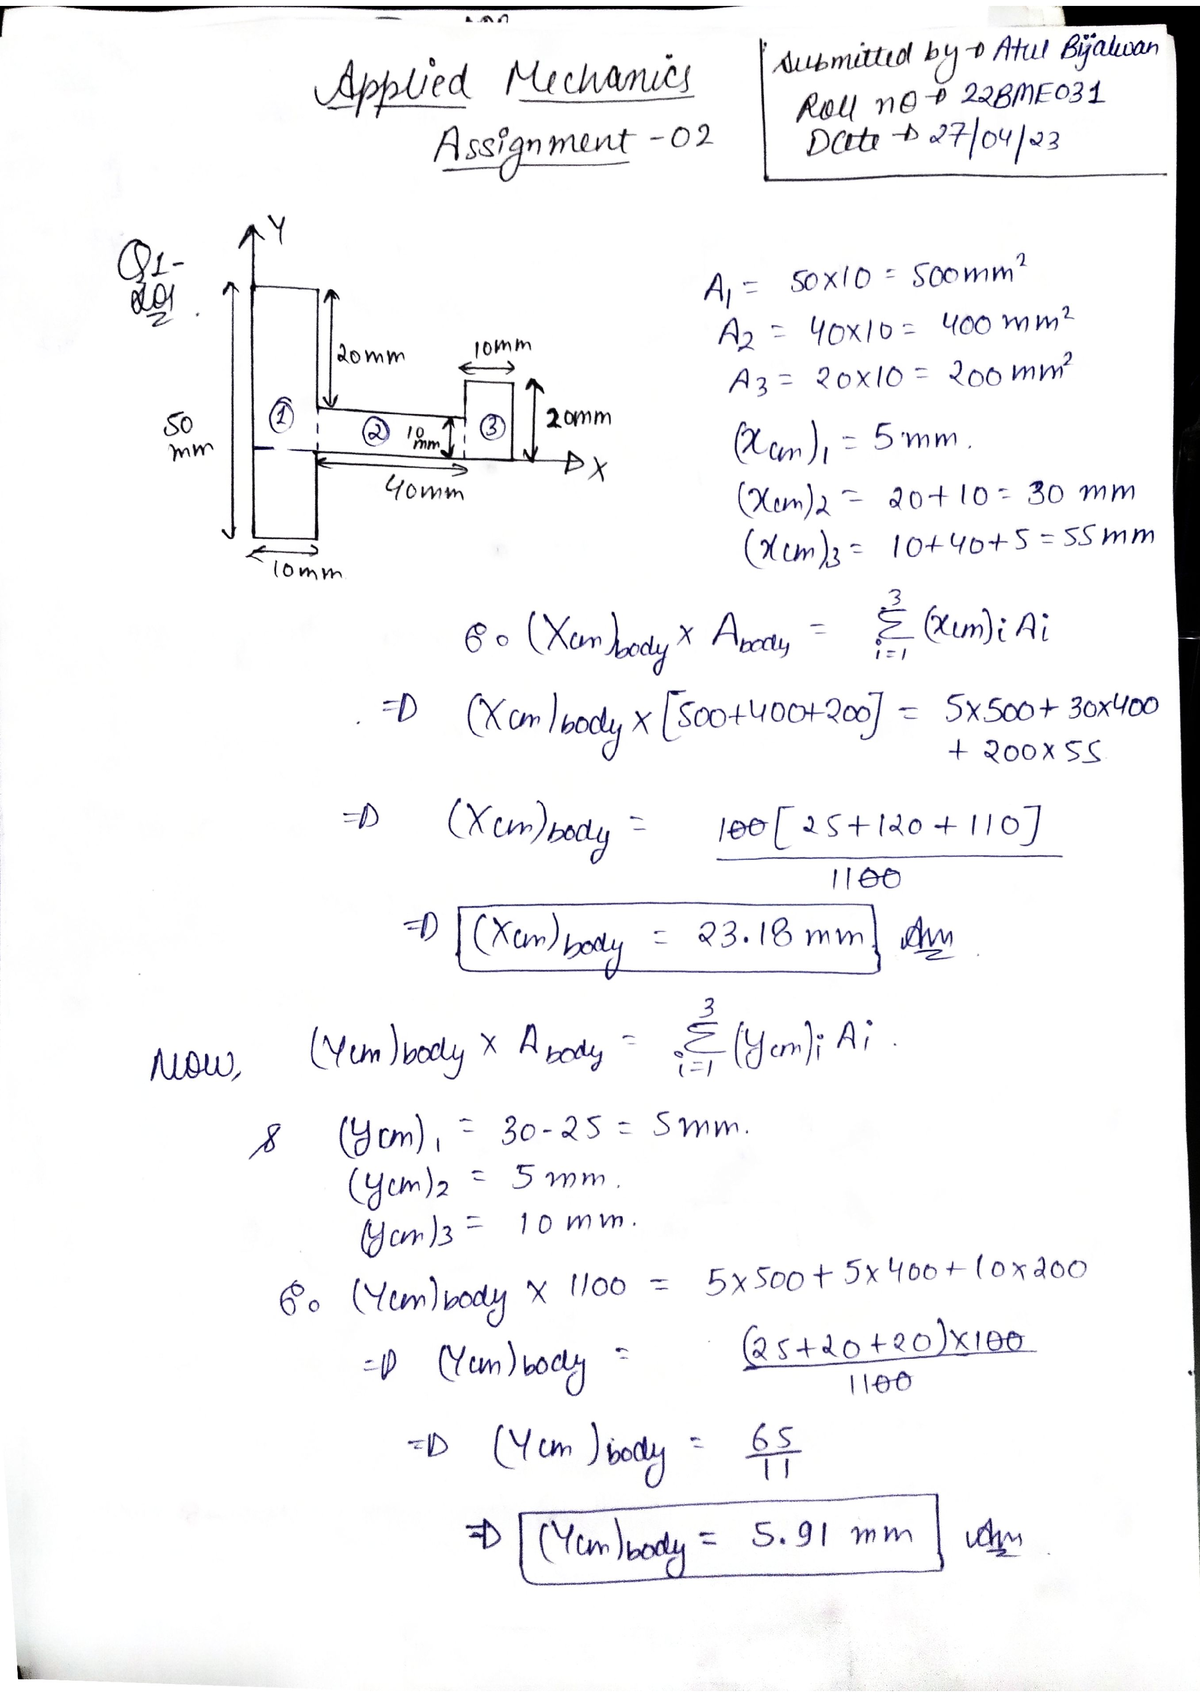 Applied Mechanics
Assignment - 02
Submitted by → Atul Bijalwan
Roll no → 22BME031
Date → 27/04/23
Q1-
Sol
Y
20mm
10mm
50
mm
①
②
10
mm
③
20mm
X
40mm
10mm
A₁ = 50×10 = 500mm²
A₂ = 40×10 = 400 mm²
A₃ = 20×10 = 200 mm²
(xcm)₁ = 5 mm.
(xcm)₂ = 20+10 = 30 mm
(xcm)₃ = 10+40+5 = 55 mm
(Xcm)body × Abody = 3 Σ i=1 (xcm)i Ai
⇒ (Xcm)body × [500+400+200] = 5×500+ 30×400
+ 200×55
⇒ (Xcm)body = 100[25+120+110]
1100
⇒ (Xcm)body = 23.18 mm Ans
Now, (Ycm)body × Abody = 3 Σ i=1 (ycm)i Ai.
& (ycm)₁ = 30-25 = 5mm.
(ycm)₂ = 5 mm.
(ycm)₃ = 10 mm.
(Ycm)body × 1100 = 5×500+5×400+10×200
⇒ (Ycm)body = (25+20+20)×100
1100
⇒ (Ycm)body = 65
11
⇒ (Ycm)body = 5.91 mm Ans